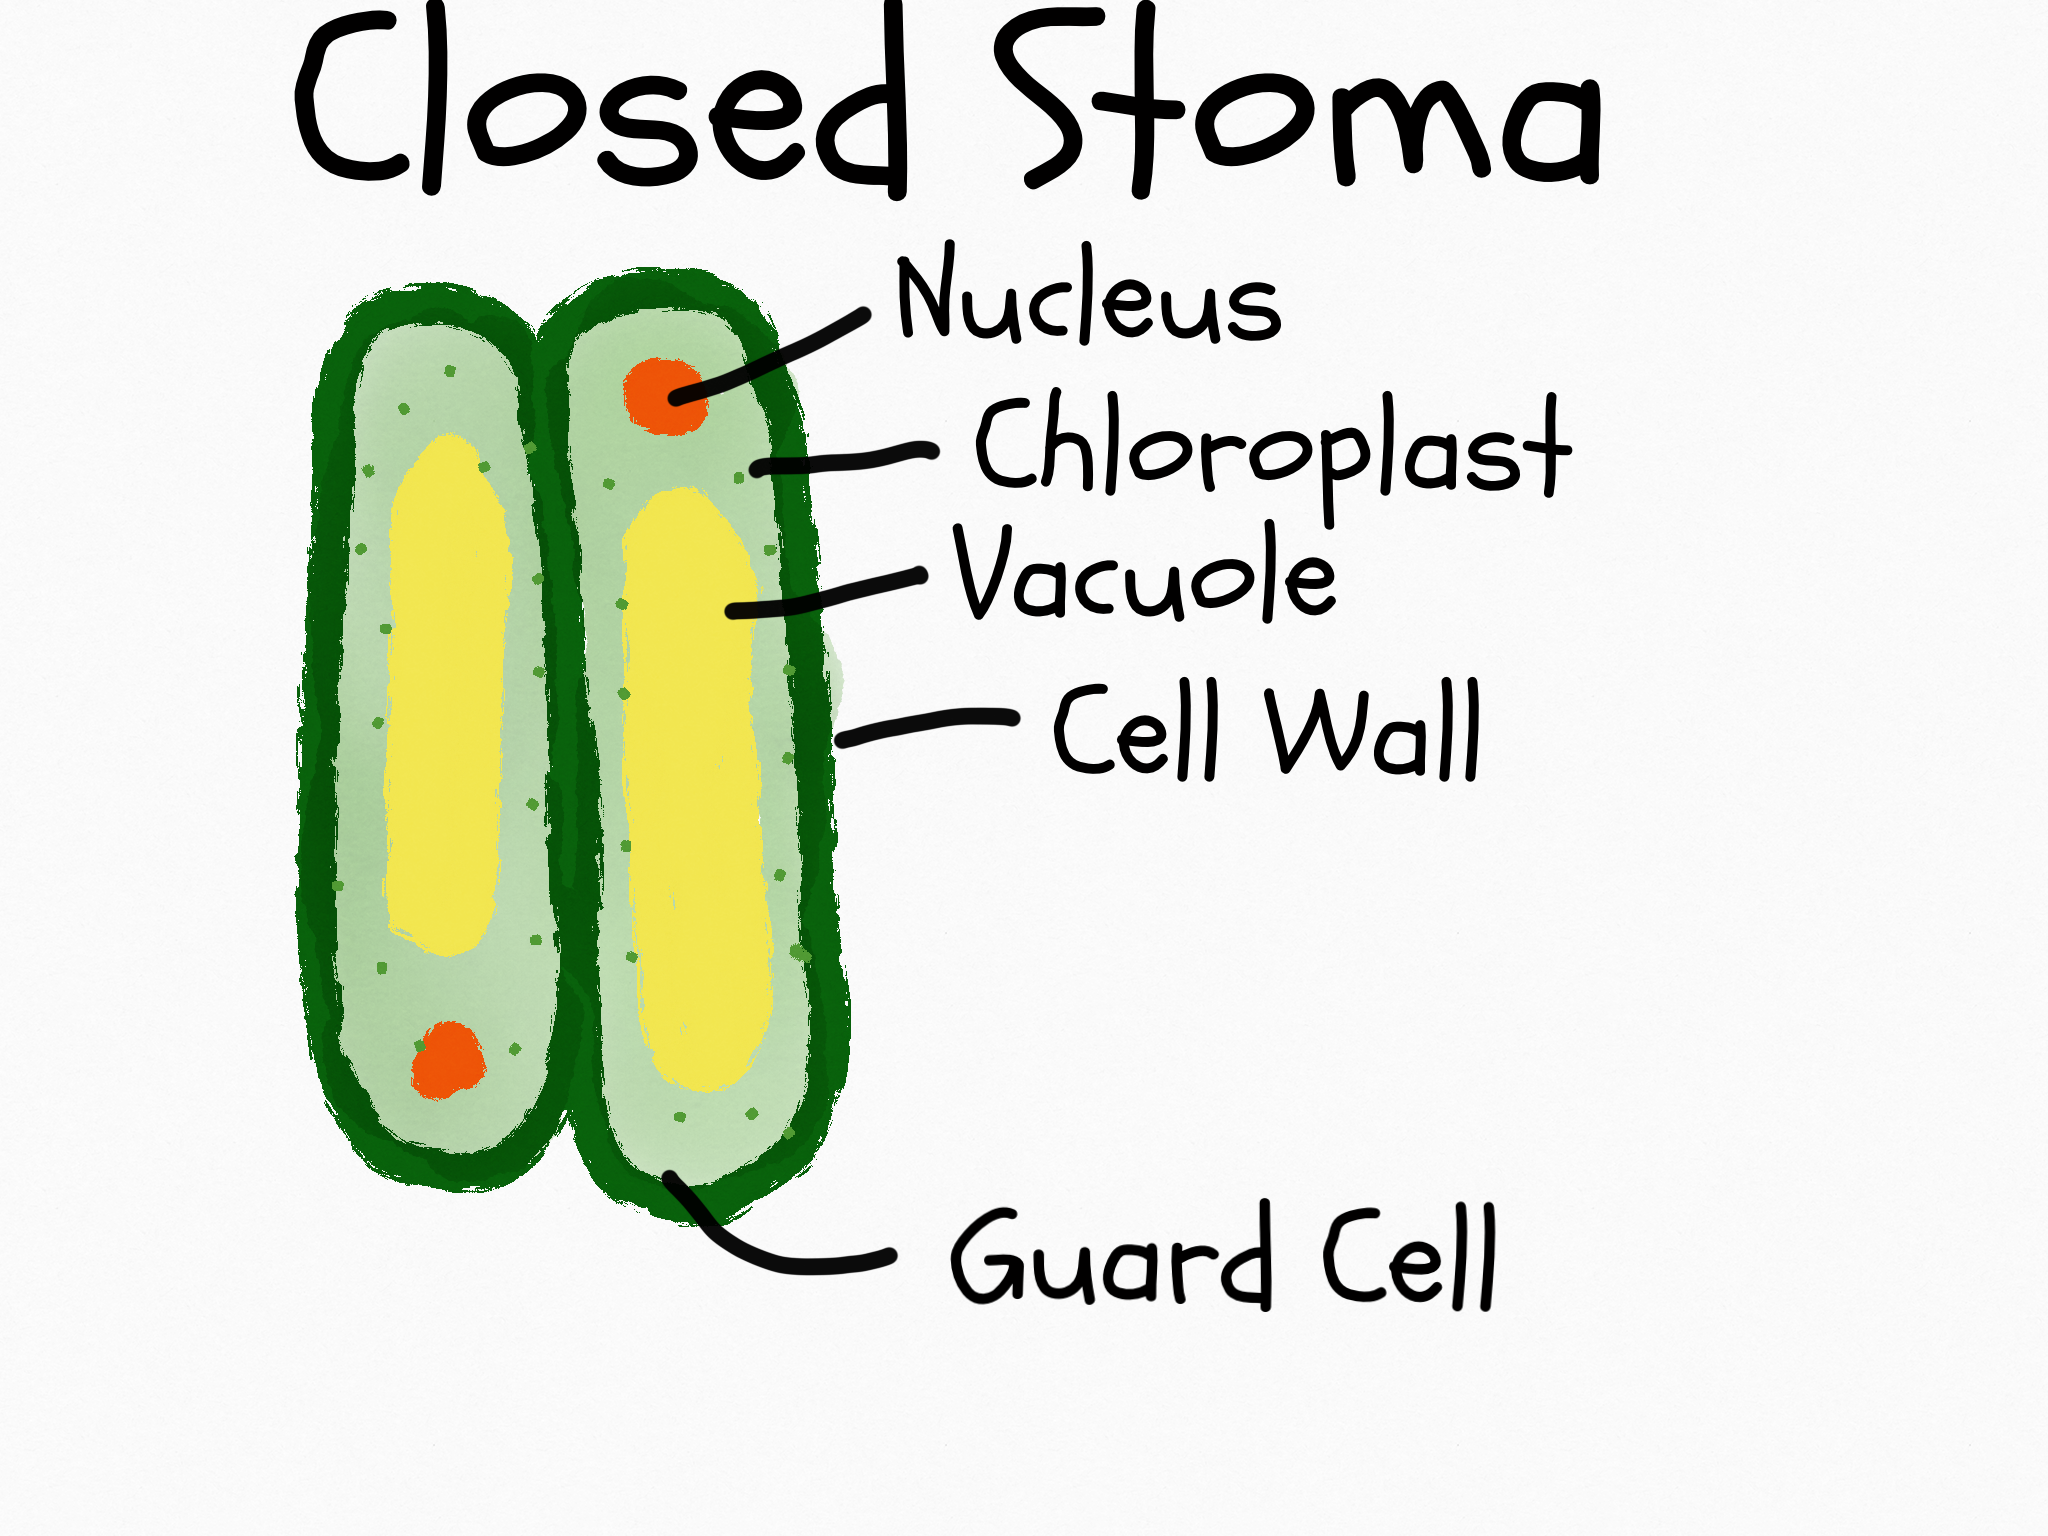 Closed Stoma
Nucleus
Chloroplast
Vacuole
Cell Wall
Guard Cell